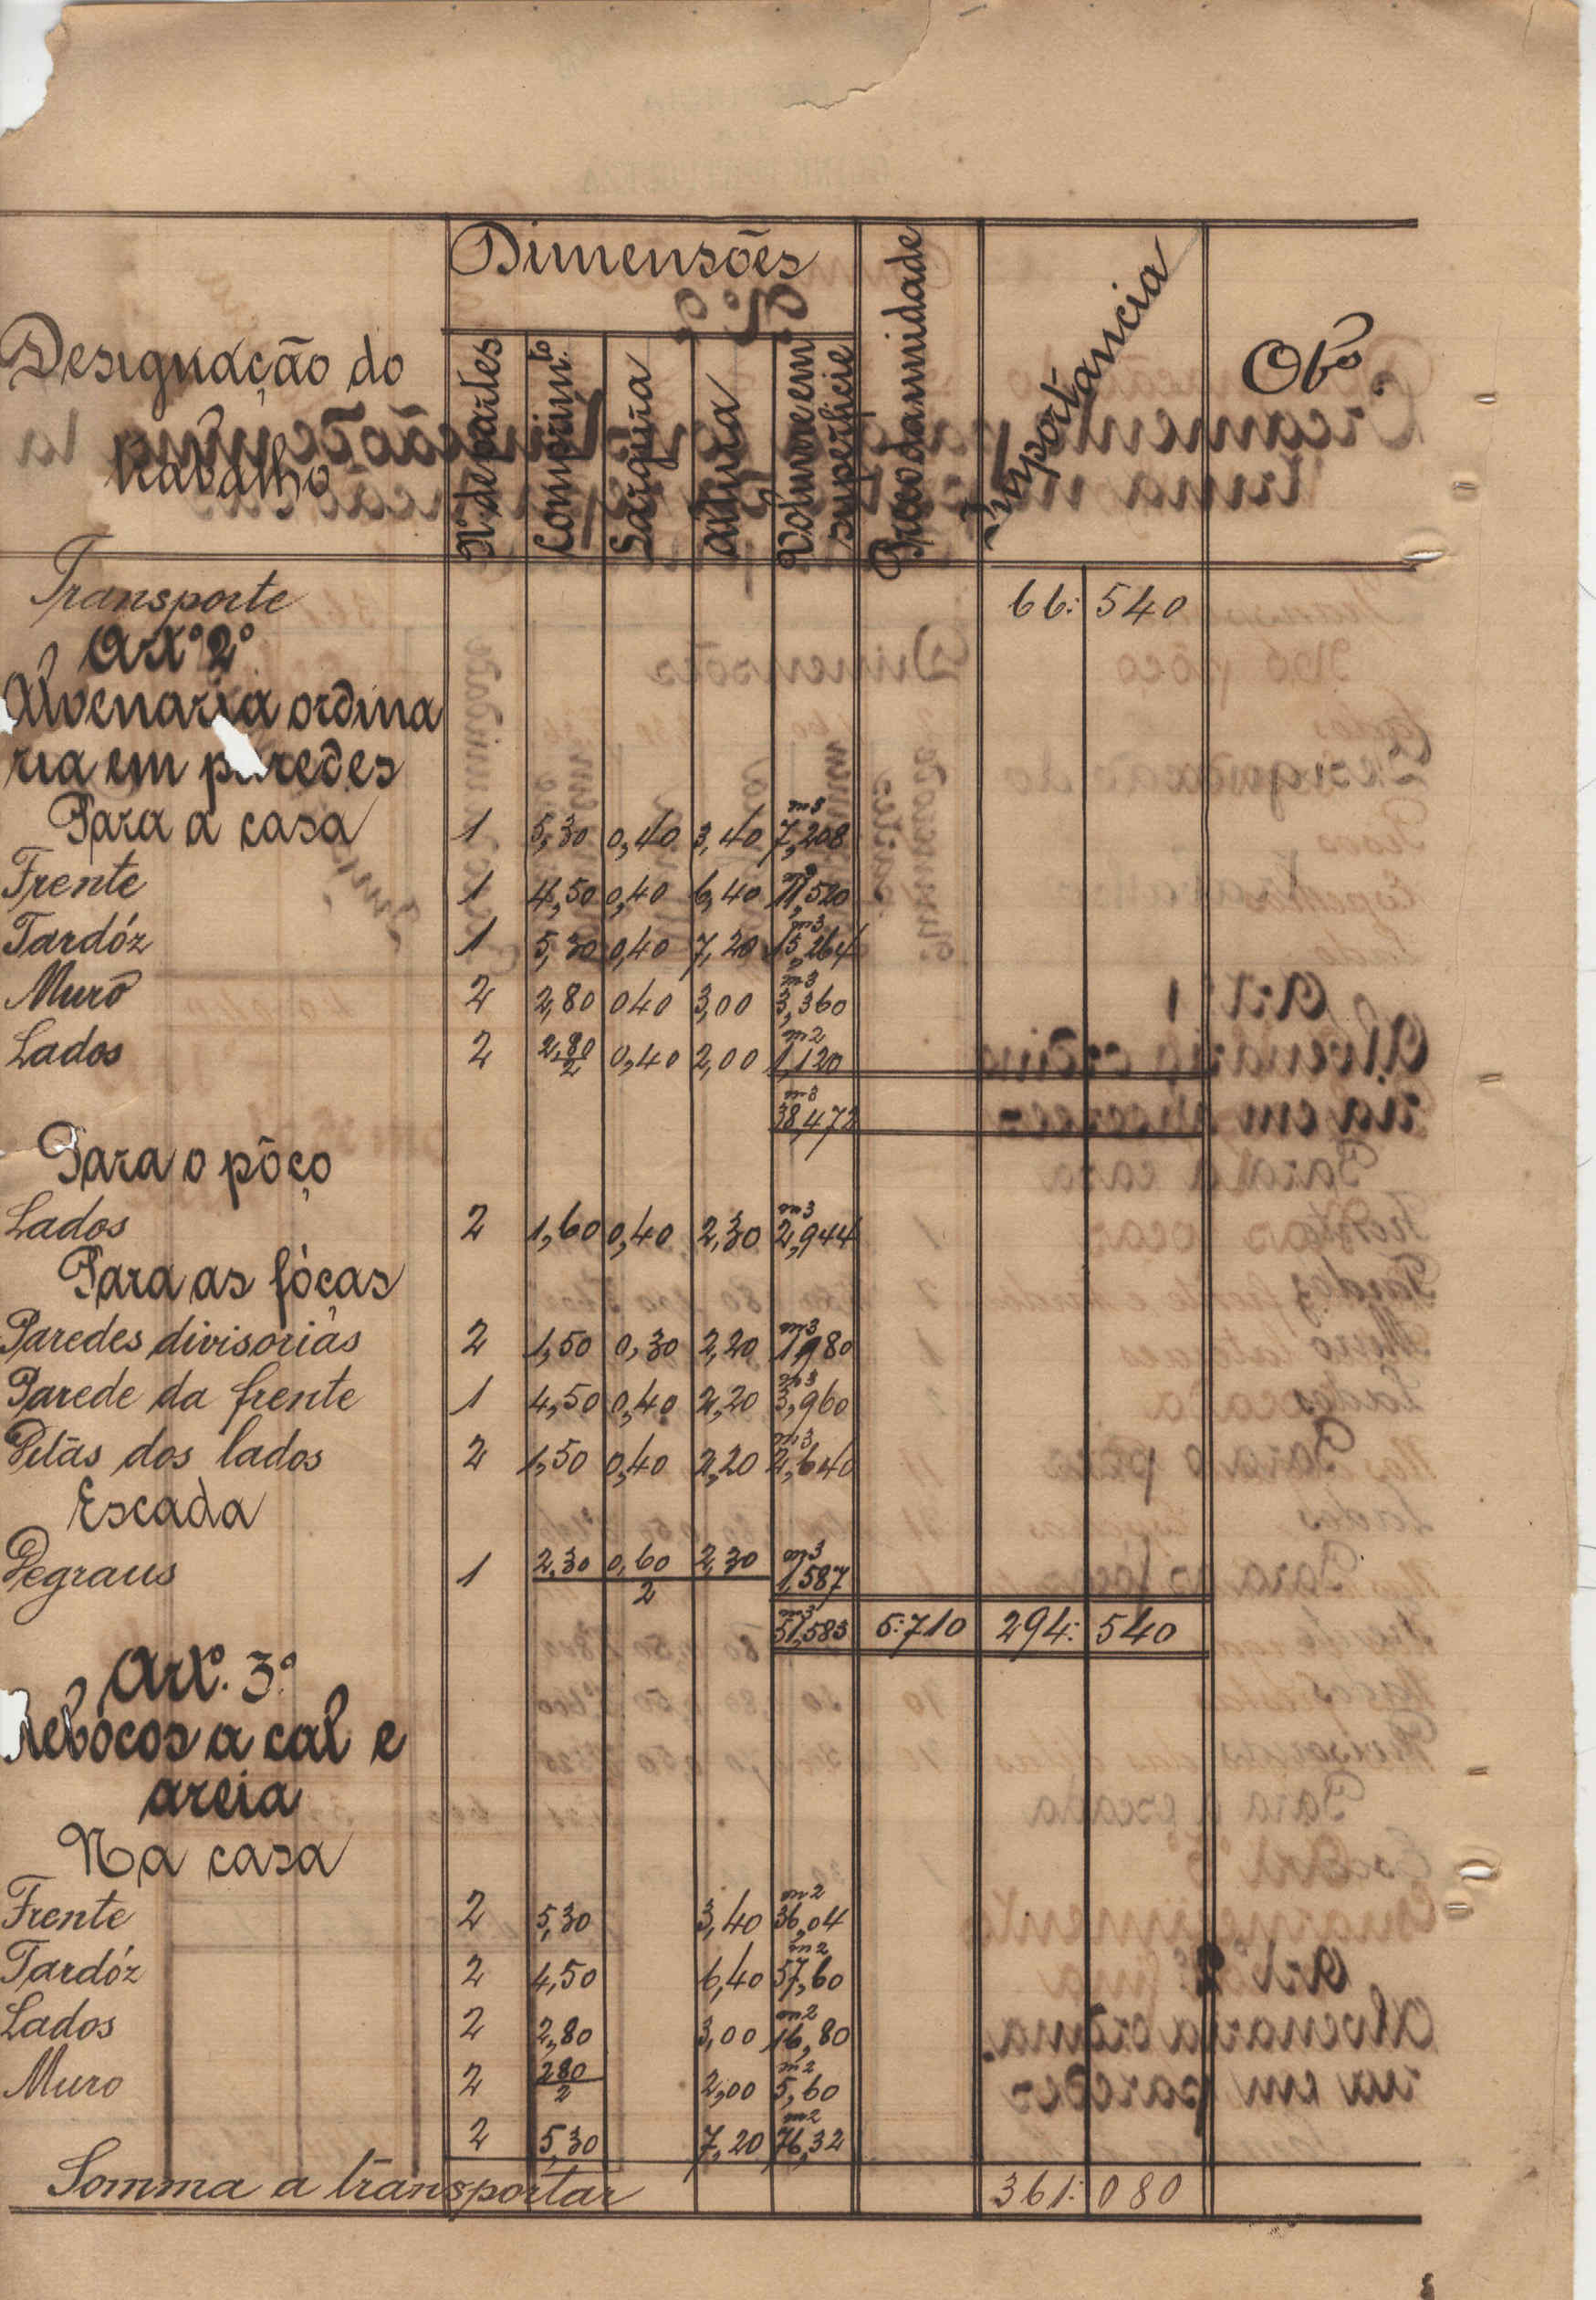 Designação do
trabalho
Dimensões
Nº de partes
Comprim.to
Largura
Altura
Volume em
superficie
Preço da unidade
Importancia
Obs
Transporte 66: 540
Art.º 2º
Alvenaria ordina
ria em paredes
Para a casa 1 5,30 0,40 3,40 m3 7,208
Frente 1 4,50 0,40 6,40 m3 11,520
Tardóz 1 5,30 0,40 7,20 m3 15,264
Muro 2 2,80 040 3,00 m3 3,360
Lados 2 2,80/2 0,40 2,00 m2 1,120
m3 38,472
Para o pôço
Lados 2 1,60 0,40 2,30 m3 2,944
Para as fóças
Paredes divisorias 2 1,50 0,30 2,20 m3 1,980
Parede da frente 1 4,50 0,40 2,20 m3 3,960
dos lados 2 1,50 0,40 2,20 m3 2,640
Escada
Degraus 1 2,30 0,60 2,30 / 2 m3 1,587
m3 51,583 5:710 294: 540
Art.º 3º
Rebócos a cal e
areia
Na casa
Frente 2 5,30 3,40 m2 36,04
Tardóz 2 4,50 6,40 m2 57,60
Lados 2 2,80 3,00 m2 16,80
Muro 2 280/2 2,00 m2 5,60
2 5,30 7,20 m2 76,32
Somma a transportar 361: 080